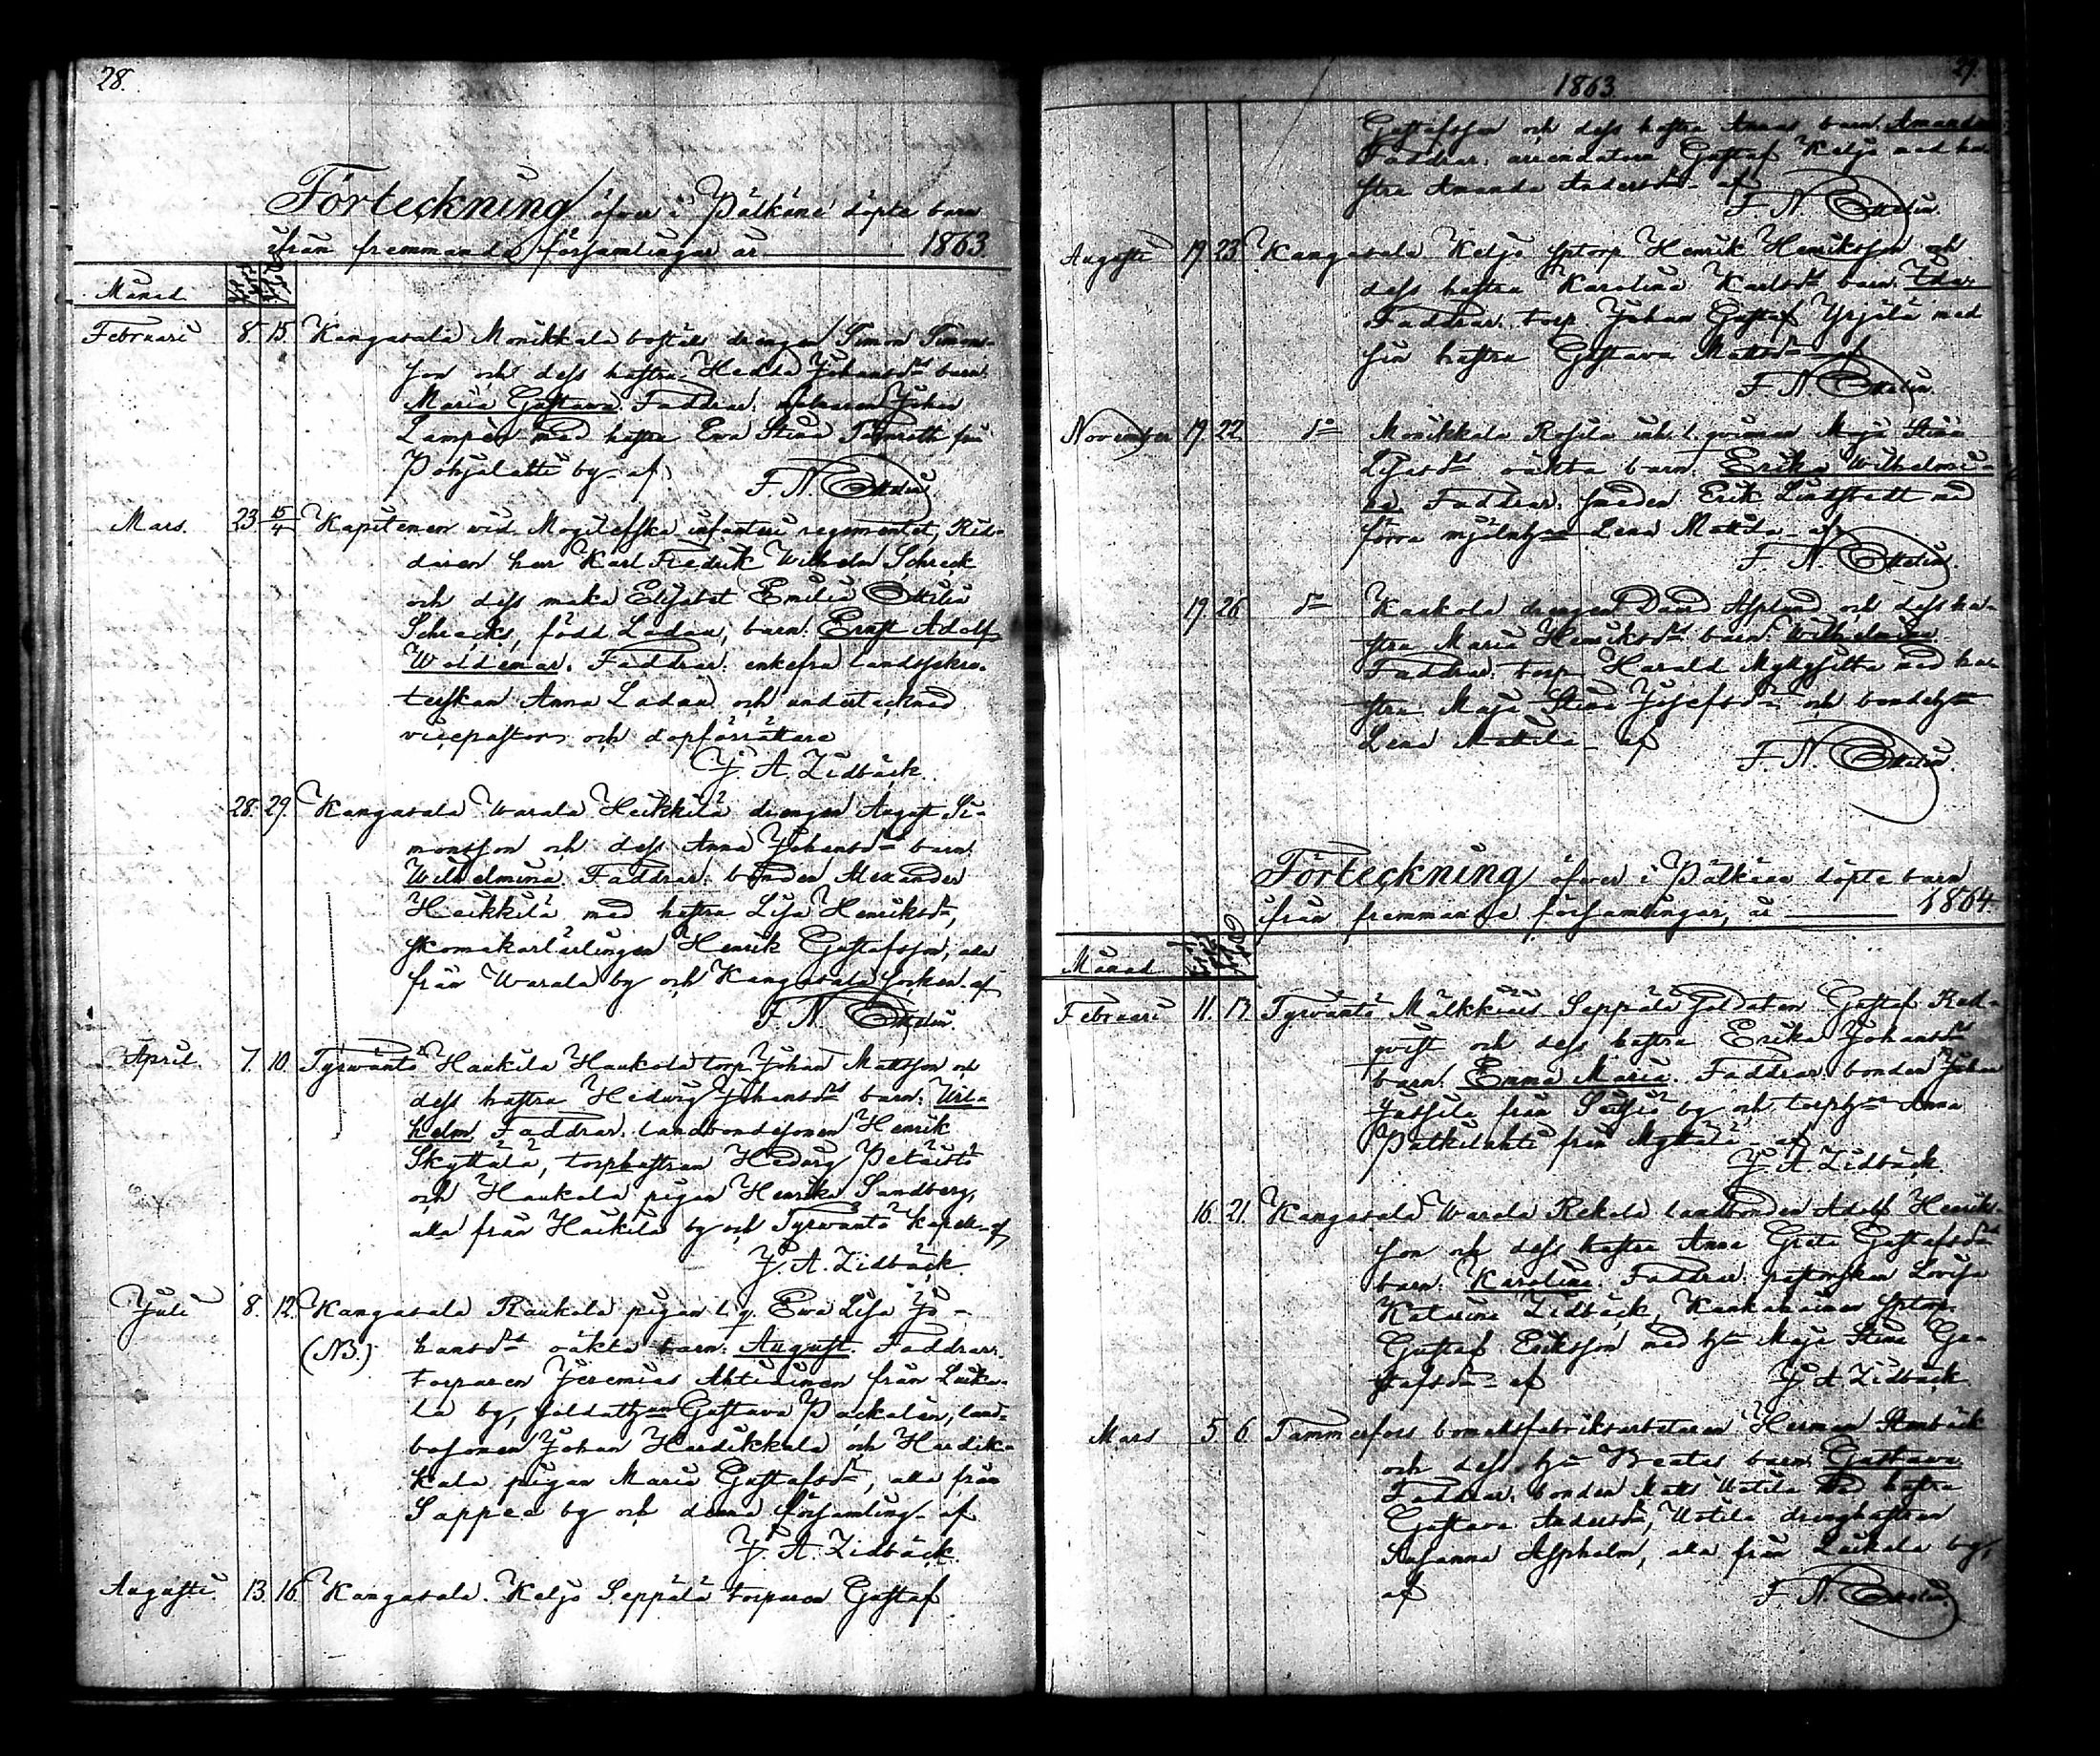 28.
Förteckning öfver i Pälkäne döpte barn
ifrån fremmande församlingar år 1863.
Månad
Februari 8. 15. Kangasala Monikkala boställ drengen Simon Simons-
son och dess hustru Hedda Johansdr barn:
Maria Gustava. Faddrar: Johan
Lampén med hustru Ewa Stina från
Pohjalahti by af
F. N. Ottelin.
Mars. 23 15/4 Kapitenen wid Mogilefska infanteri regimentet, Rid-
daren herr Karl Fredrik Wilhelm Schreck
och dess maka Elisabet Emilia Ottilia
Schreck, född Ladau, barn: Ernst Adolf
Woldemar. Faddrar: enkefru landssekre-
terskan Anna Ladau och undertecknad
vicepastor och dopförrättare
J. A. Lidbäck.
28. 29. Kangasala Warala Heikkilä drengen August Si-
monsson och dess Anna Johansdr barn:
Wilhelmina. Faddrar: bonden Alexander
Heikkilä med hustru Lisa Henriksdr,
skomakarlärlingen Henrik Gustafsson, alla
från Warala by och Kangasala socken af
F. N. Ottelin.
April. 7. 10. Tyrwäntö Haukila Haukola torp. Johan Mattsson och
dess hustru Hedwig Johansdr barn: Wil-
helm. Faddrar: landbondesonen Henrik
Skyttälä, torphustrun Hedwig Petäistö
och Haukola pigan Henrika Sandberg,
alla från Haukila by och Tyrwäntö kapell af
J. A. Lidbäck.
Juli 8. 12. Kangasala Raukola pigan l. q. Ewa Lisa Jo-
(NB.) hansdr oäkta barn: August. Faddrar:
torparen Jeremias Ahtiainen från Luika-
la by, soldathun Gustava Packalén, land-
bosonen Johan Hardikkala och Hardik-
kala pigan Maria Gustafsdr, alla från
Sappee by och denna församling af
J. A. Lidbäck.
Augusti. 13. 16. Kangasala. Keljo Seppälä torparen Gustaf
1863. 29.
Gustafsson och dess hustru Annas barn: Amanda
Faddrar: arrendatorn Gustaf Keljo med hu-
stru Amanda Andersdr af
F. N. Ottelin.
Augusti 19 23 Kangasala Keljo sptorp. Henrik Henriksson och
dess hustru Karolina Karlsdr barn: Edw
Faddrar: torp. Johan Gustaf Yrjölä med
sin hustru Gustava Mattsdr af
F. N. Ottelin.
November 19. 22. do Monikkala Rosila inh. l. qvinnan Maja Stina
oäkta barn: Erika Wilhelmi-
na. Faddrar: smeden Erik Lindstedt med
förra mjölnhun Lena Mattsdr af
F. N. Ottelin.
19 26 do Kaukola drengen David Asplund och dess hu-
stru Maria Henriksdr barn: Wilhelmina.
Faddrar: torp. Harald Myllysilta med hu-
stru Maja Stina Josefsdr och bondehun
Lena Mattila af
F. N. Ottelin.
Förteckning öfver i Pälkäne döpte barn
ifrån fremmande församlingar, år 1864.
Månad
Februari 11. 13. Tyrwäntö Mälkkiäis Seppälä soldaten Gustaf Rad-
qvist och dess hustru Erika Johansdr
barn: Emma Maria. Faddrar: bonden Johan
Jussila från by och torphun Anna
Pätkilahti från Myttälä af
J. A. Lidbäck.
16. 21. Kangasala Warala Rekola landbonden Adolf Henriks-
son och dess hustru Anna Greta Gustafsdr
barn: Karolina. Faddrar: pastorskan Lovisa
Katarina Lidbäck, Kankahainen sptorp.
Gustaf Eriksson med hu Maja Stina Gu-
stafsdr af J. A. Lidbäck.
Mars 5. 6. Tammerfors bomullsfabriksarbetaren Herman
och dess hu Beatas barn: Gustava
Faddrar: bonden Matts Uotila med hustru
Gustava Andersdr, Uotila drenghustrun
Susanna Aspholm, alla från Luikala by,
af F. N. Ottelin.